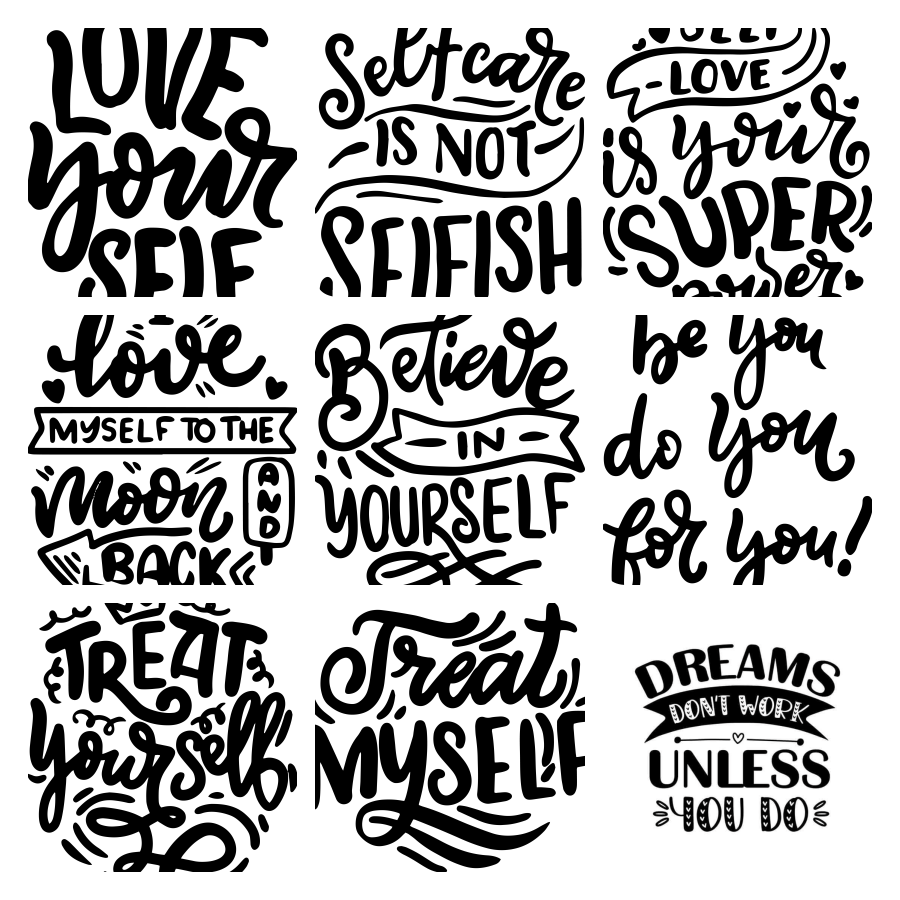 LOVE
your
SELF
Selfcare
IS NOT
SELFISH
SELF
LOVE
is your
SUPER
power
love
MYSELF TO THE
moon
AND
BACK
Believe
IN
YOURSELF
be you
do you
for you!
TREAT
yourself
Treat
MYSELF
DREAMS
DON'T WORK
UNLESS
YOU DO